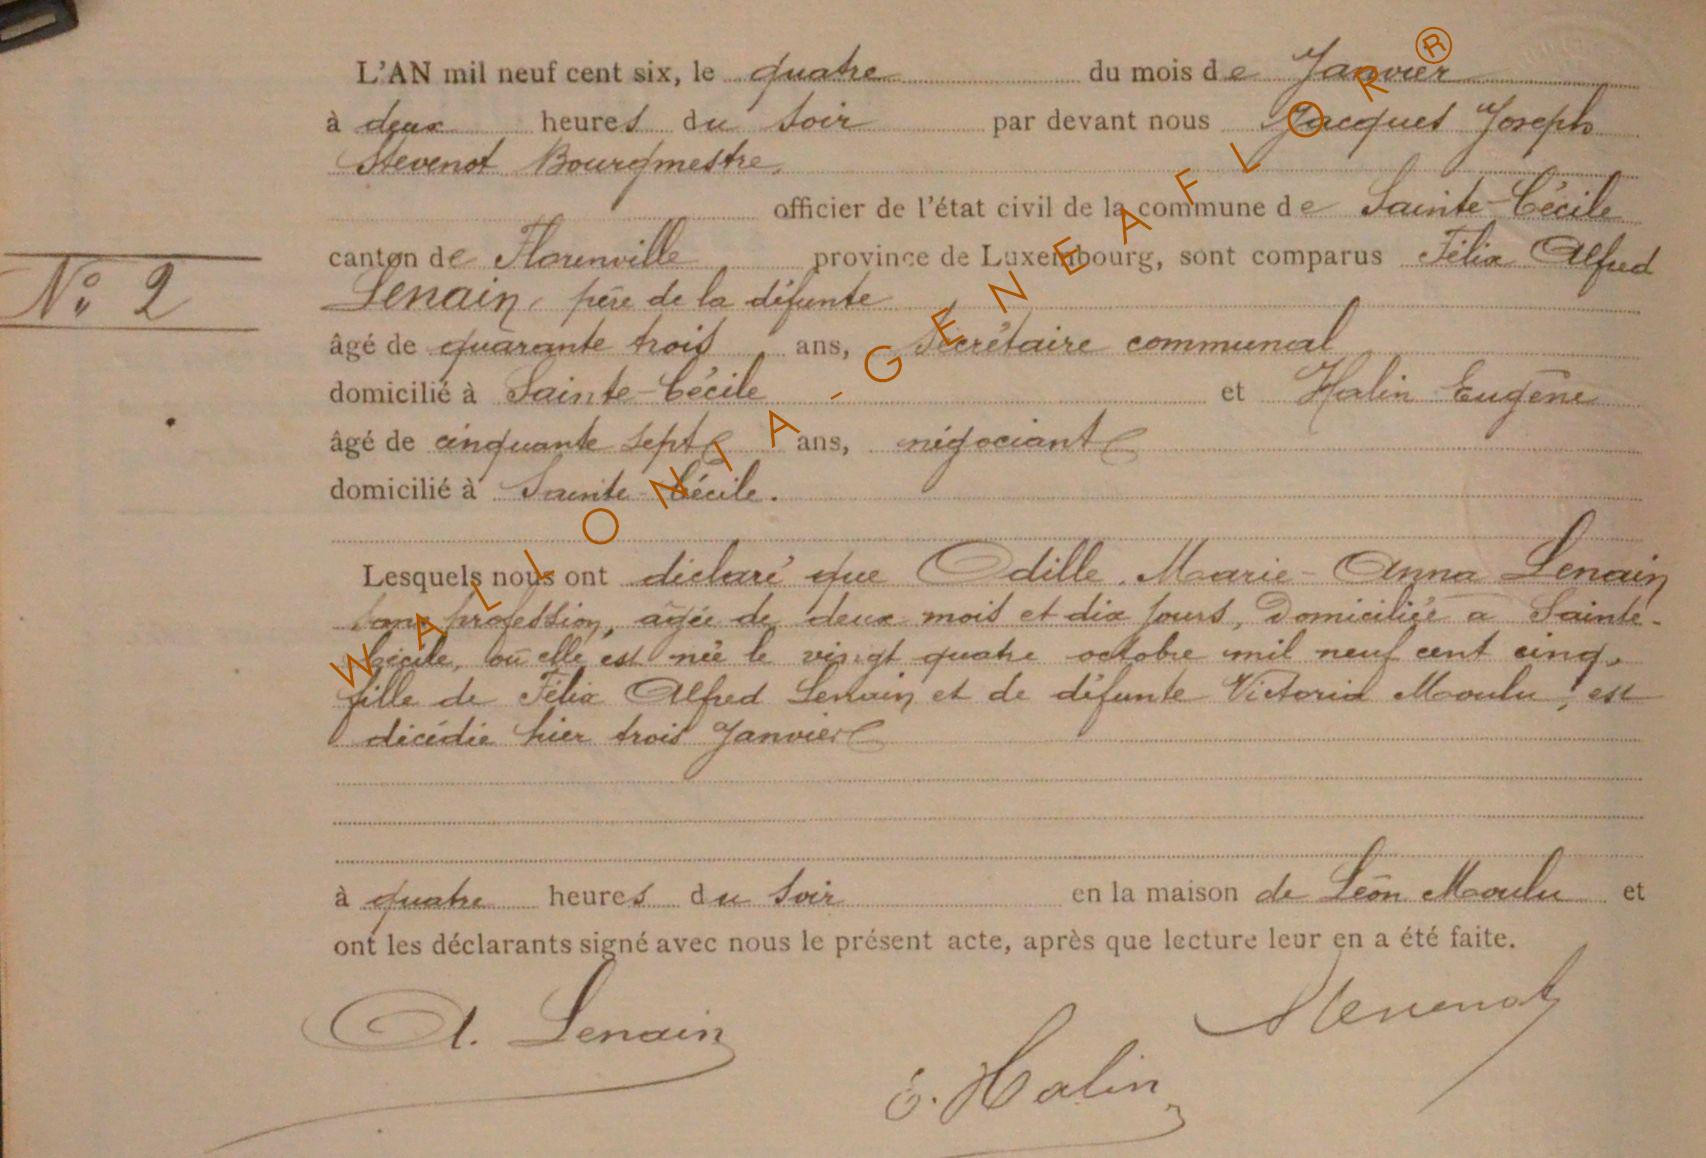 L'AN mil neuf cent six, le quatre du mois de Janvier
à deux heures du soir par devant nous Jacques Joseph
Stevenot Bourgmestre,
officier de l'état civil de la commune de Sainte-Cécile
canton de Florenville province de Luxembourg, sont comparus Félix Alfred
Lenain, père de la défunte
N° 2
âgé de quarante trois ans, Secrétaire communal
domicilié à Sainte-Cécile et Halin Eugène
âgé de cinquante sept ans, négociant
domicilié à Sainte-Cécile.
Lesquels nous ont déclaré que Odille Marie-Anna Lenain
sans profession, agée de deux mois et dix jours, Domiciliée a Sainte-
Cécile, où elle est née le vingt quatre octobre mil neuf cent cinq,
fille de Félix Alfred Lenain et de défunte Victoria Moulu, est
décédée hier trois Janvier
à quatre heures du soir en la maison de Léon Moulu et
ont les déclarants signé avec nous le présent acte, après que lecture leur en a été faite.
A. Lenain
Stevenot
E. Halin
WALLONIA-GENEAFLOR®